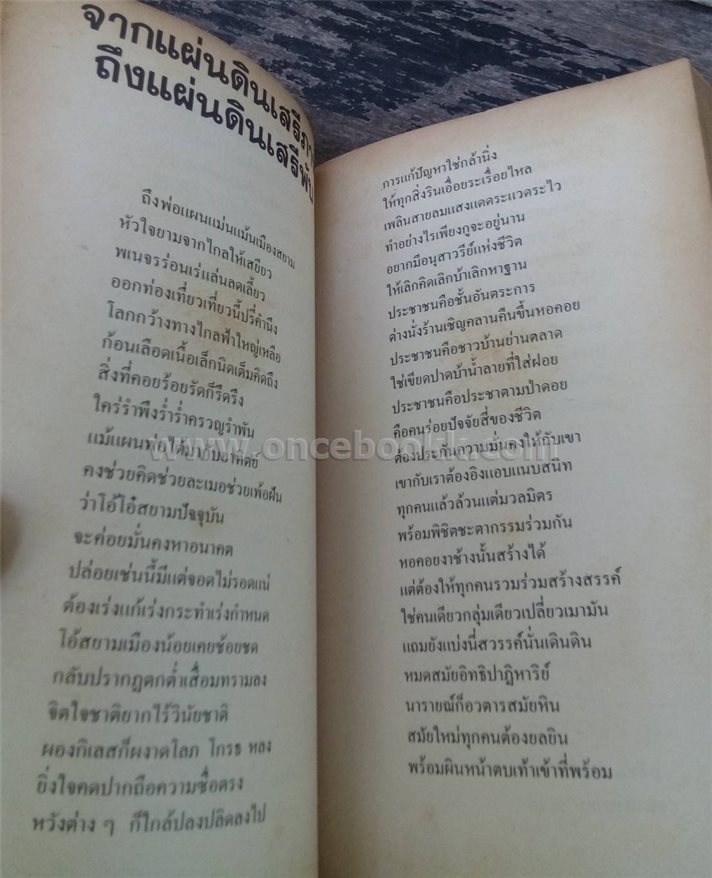 จากแผ่นดินเสรีภา
ถึงแผ่นดินเสรีพัน
ถึงพ่อแผนแม่นแม้นเมืองสยาม
หัวใจยามจากไกลให้เสียว
พเนจรร่อนเร่แล่นลดเลี้ยว
ออกท่องเที่ยวเที่ยวนี้ปรี่คำนึง
โลกกว้างทางไกลฟ้าใหญ่เหลือ
ก้อนเลือดเนื้อเล็กนิดเต็มคิดถึง
สิ่งที่คอยร้อยรัดก็รึดรึง
ใคร่รำพึงร่ำร่ำครวญรำพัน
แม้แผนพ่อได้มากับอาทิตย์
คงช่วยคิดช่วยละเมอช่วยเพ้อฝัน
ว่าโอ้โอ๋สยามปัจจุบัน
จะค่อยมั่นคงหาอนาคต
ปล่อยเช่นนี้มีแต่จอดไม่รอดแน่
ต้องเร่งแก้เร่งกระทำเร่งกำหนด
โอ้สยามเมืองน้อยเคยช้อยชด
กลับปรากฏตกต่ำเสื่อมทรามลง
จิตใจชาติยากไร้วินัยชาติ
ผองกิเสสก็ผงาดโลภ โกรธ หลง
ยิ่งใจคดปากถือความซื่อตรง
หวังต่าง ๆ ก็ใกล้ปลงปลิดลงไป
การแก้ปัญหาใช่กล้านิ่ง
ให้ทุกสิ่งรินเอื่อยระเรื่อยไหล
เพลินสายลมแสงแดดระแวดระไว
ทำอย่างไรเพียงกูจะอยู่นาน
อยากมีอนุสาวรีย์แห่งชีวิต
ให้เลิกคิดเลิกบ้าเลิกหาฐาน
ประชาชนคือชั้นอันตระการ
ต่างนั่งร้านเชิญคลานคืนขึ้นหอคอย
ประชาชนคือชาวบ้านย่านตลาด
ใช่เขียดปาดบ้าน้ำลายที่ใส่ฝอย
ประชาชนคือประชาตามป่าดอย
คือคนร่อยปัจจัยสี่ของชีวิต
ต้องประกันความมั่นคงให้กับเขา
เขากับเราต้องอิงแอบแนบสนิท
ทุกคนแล้วล้วนแต่มวลมิตร
พร้อมพิชิตชะตากรรมร่วมกัน
หอคอยงาช้างนั้นสร้างได้
แต่ต้องให้ทุกคนรวมร่วมสร้างสรรค์
ใช่คนเดียวกลุ่มเดียวเปลี่ยวเมามัน
แถมยังแบ่งนี่สวรรค์นั่นเดินดิน
หมดสมัยอิทธิปาฏิหาริย์
นารายณ์ก็อวตารสมัยหิน
สมัยใหม่ทุกคนต้องยลยิน
พร้อมผินหน้าตบเท้าเข้าที่พร้อม
www.oncebookk.com